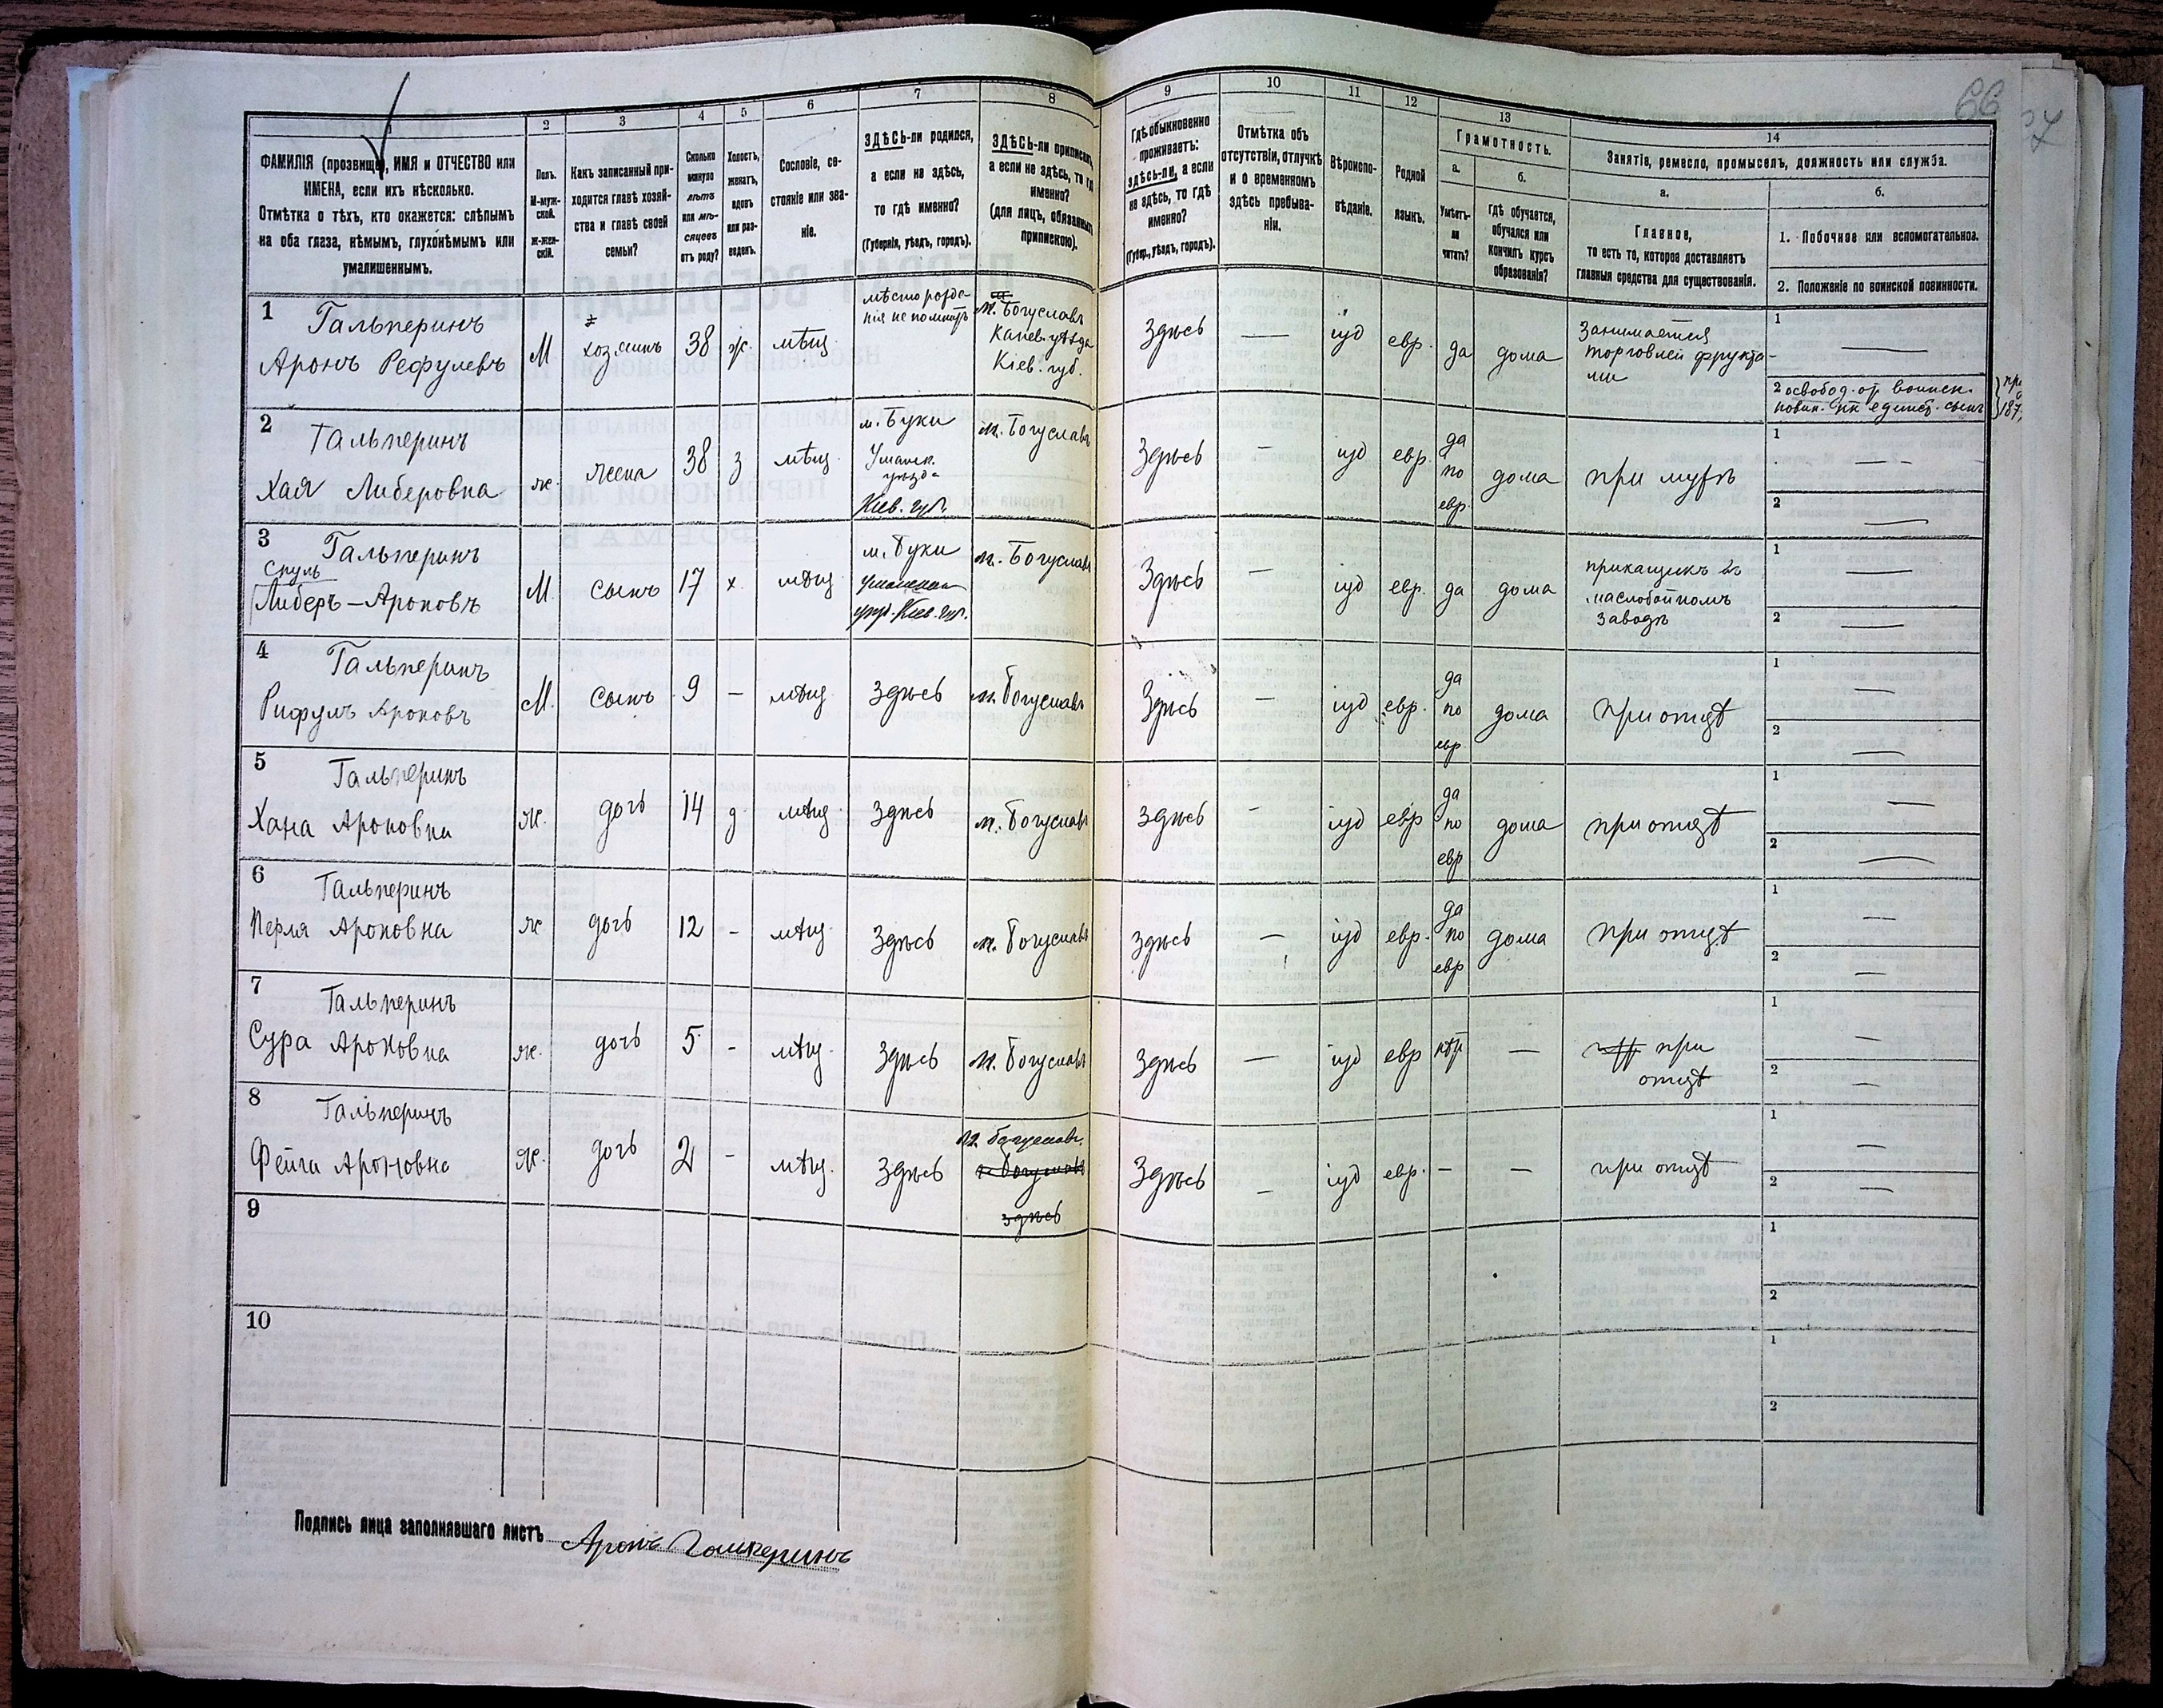 66
1
2
3
4
5
6
7
8
9
10
11
12
13
14
ФАМИЛІЯ (прозвище), ИМЯ и ОТЧЕСТВО или
ИМЕНА, если ихъ нѣсколько.
Отмѣтка о тѣхъ, кто окажется: слѣпымъ
на оба глаза, нѣмымъ, глухонѣмымъ или
умалишеннымъ.
Полъ.
М-муж-
ской.
Ж-жен-
скій.
Какъ записанный при-
ходится главѣ хозяй-
ства и главѣ своей
семьи?
Сколько
минуло
лѣтъ
или мѣ-
сяцевъ
отъ роду?
Холостъ,
женатъ,
вдовъ
или раз-
веденъ.
Сословіе, со-
стояніе или зва-
ніе.
ЗДѢСЬ-ли родился,
а если не здѣсь,
то гдѣ именно?
(Губернія, уѣздъ, городъ).
ЗДѢСЬ-ли приписанъ,
а если не здѣсь, то гдѣ
именно?
(для лицъ, обязанныхъ
припискою).
Гдѣ обыкновенно
проживаетъ:
здѣсь-ли, а если
не здѣсь, то гдѣ
именно?
(Губер., уѣздъ, городъ).
Отмѣтка объ
отсутствіи, отлучкѣ
и о временномъ
здѣсь пребыва-
ніи.
Вѣроиспо-
вѣданіе.
Родной
языкъ.
Грамотность.
а.
Умѣетъ-
ли
читать?
б.
Гдѣ обучается,
обучался или
кончилъ курсъ
образованія?
Занятіе, ремесло, промыселъ, должность или служба.
а.
Главное,
то есть то, которое доставляетъ
главныя средства для существованія.
б.
1. Побочное или вспомогательное.
2. Положеніе по воинской повинности.
1
Гальперинъ
Аронъ Рефулевъ
М
хозяинъ
38
ж.
мѣщ
мѣсто рожде-
нія не помнитъ
м. Богуславъ
Канев. уѣзда
Кіев. губ.
Здѣсь
—
іуд
евр.
да
дома
Занимается
торговлей фрукта-
ми
1 —
2 освобод. от воинск.
повин. кк единст. сынъ
2
Гальперинъ
Хая Либеровна
ж.
жена
38
з
мѣщ.
м. Буки
Уманск.
уѣзда
Кіев. губ.
м. Богуславъ
Здѣсь
—
іуд
евр.
да
по
евр
дома
при мужѣ
1 —
2 —
3
Гальперинъ
Сруль
Либеръ-Ароновъ
М.
сынъ
17
х.
мѣщ
м. Буки
Уманскаго
уѣзд. Кіев. губ.
м. Богуславъ
Здѣсь
—
іуд
евр.
да
дома
прикащикъ въ
маслобойномъ
заводѣ
1 —
2 —
4
Гальперинъ
Рифулъ Ароновъ
М.
сынъ
9
-
мѣщ
здѣсь
м. Богуславъ
Здѣсь
—
іуд
евр.
да
по
евр
дома
при отцѣ
1 —
2 —
5
Гальперинъ
Хана Ароновна
ж.
дочь
14
д.
мѣщ
здѣсь
м. Богуславъ
здѣсь
-
іуд
евр
да
по
евр
дома
при отцѣ
1 —
2 —
6
Гальперинъ
Перля Ароновна
ж
дочь
12
-
мѣщ
здѣсь
м. Богуславъ
здѣсь
—
іуд
евр.
да
по
евр
дома
при отцѣ
1 —
2 —
7
Гальперинъ
Сура Ароновна
ж.
дочь
5
-
мѣщ.
здѣсь
м. Богуславъ
здѣсь
—
іуд
евр
нѣт
—
при
отцѣ
1 —
2 —
8
Гальперинъ
Фейга Ароновна
ж.
дочь
2
-
мѣщ.
здѣсь
м. Богуславъ.
м. Богуславъ
здѣсь
Здѣсь
—
іуд
евр.
-
—
при отцѣ
1 —
2 —
9
1
2
10
1
2
Подпись лица заполнявшаго листъ Аронъ Гальперинъ